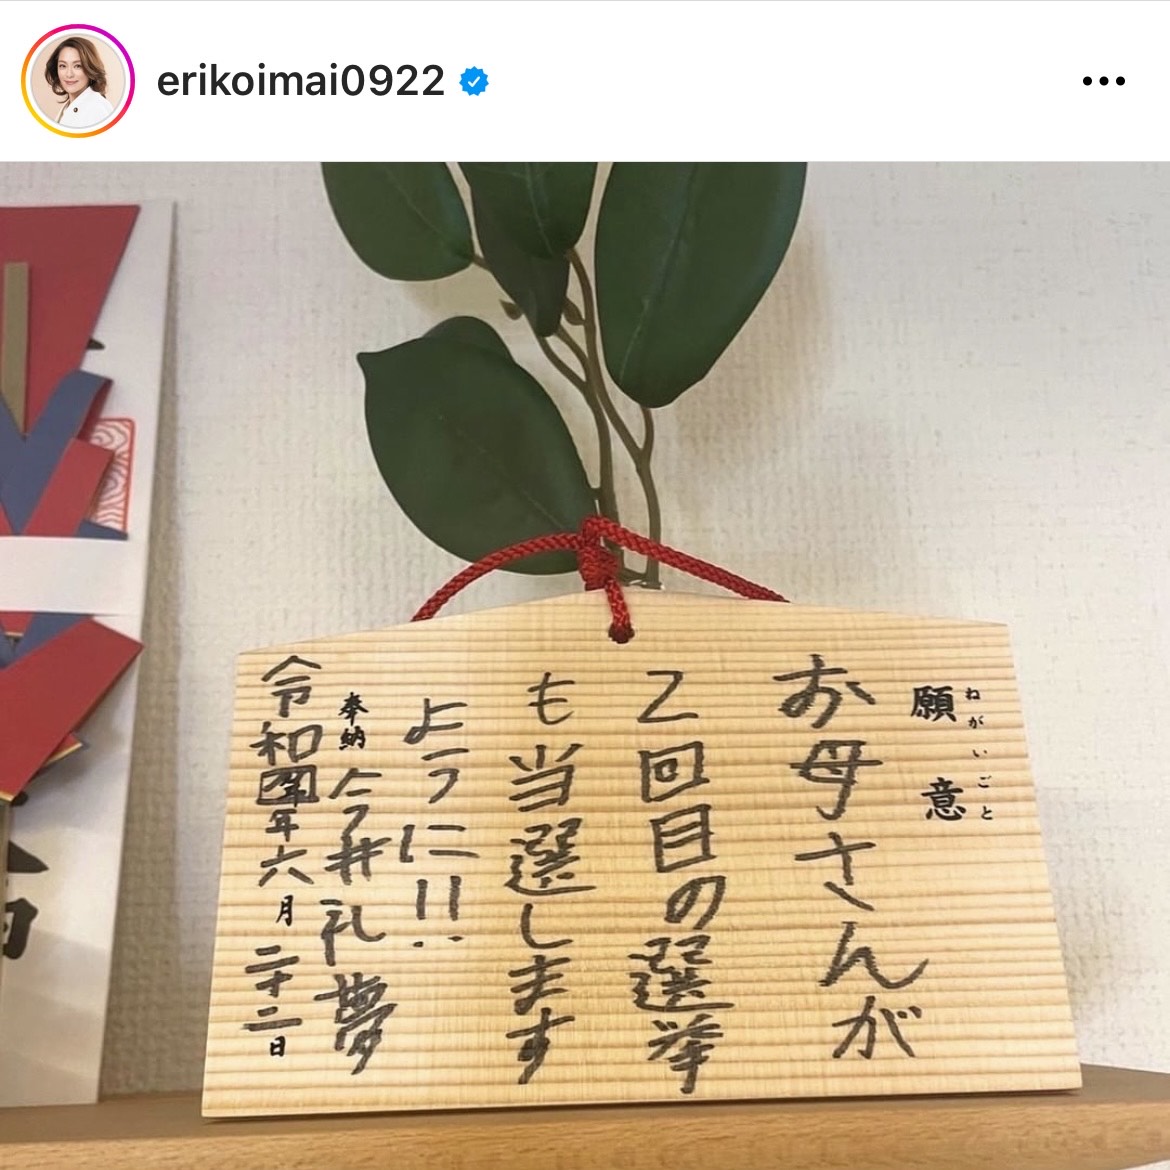 erikoimai0922
願意
ねがいごと
お母さんが
2回目の選挙
も当選します
ように!!
奉納 今井礼夢
令和四年六月二十二日